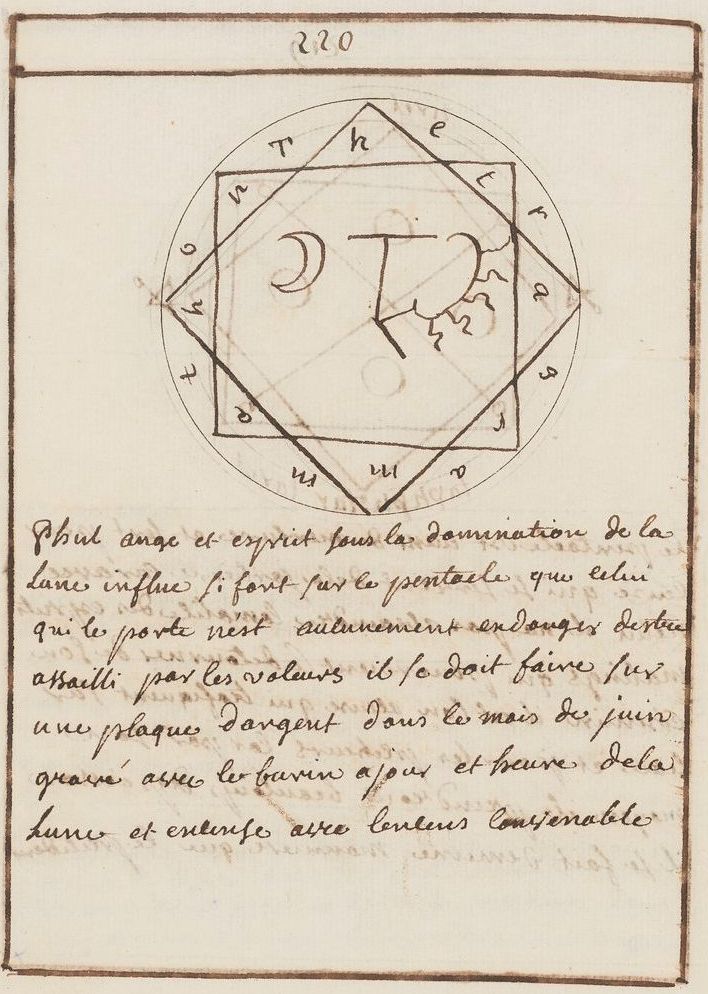 220
T h e t r a g r a m m a t h o n
Phul ange et esprit sous la domination de la
Lune influe si fort sur le pentacle que celui
qui le porte nést aucunement endanger destre
assailli par les voleurs il se doit faire sur
une plaque dargent dans le mais de juin
gravé avec le burin a jour et heure de la
Lune et encense avec lencens convenable